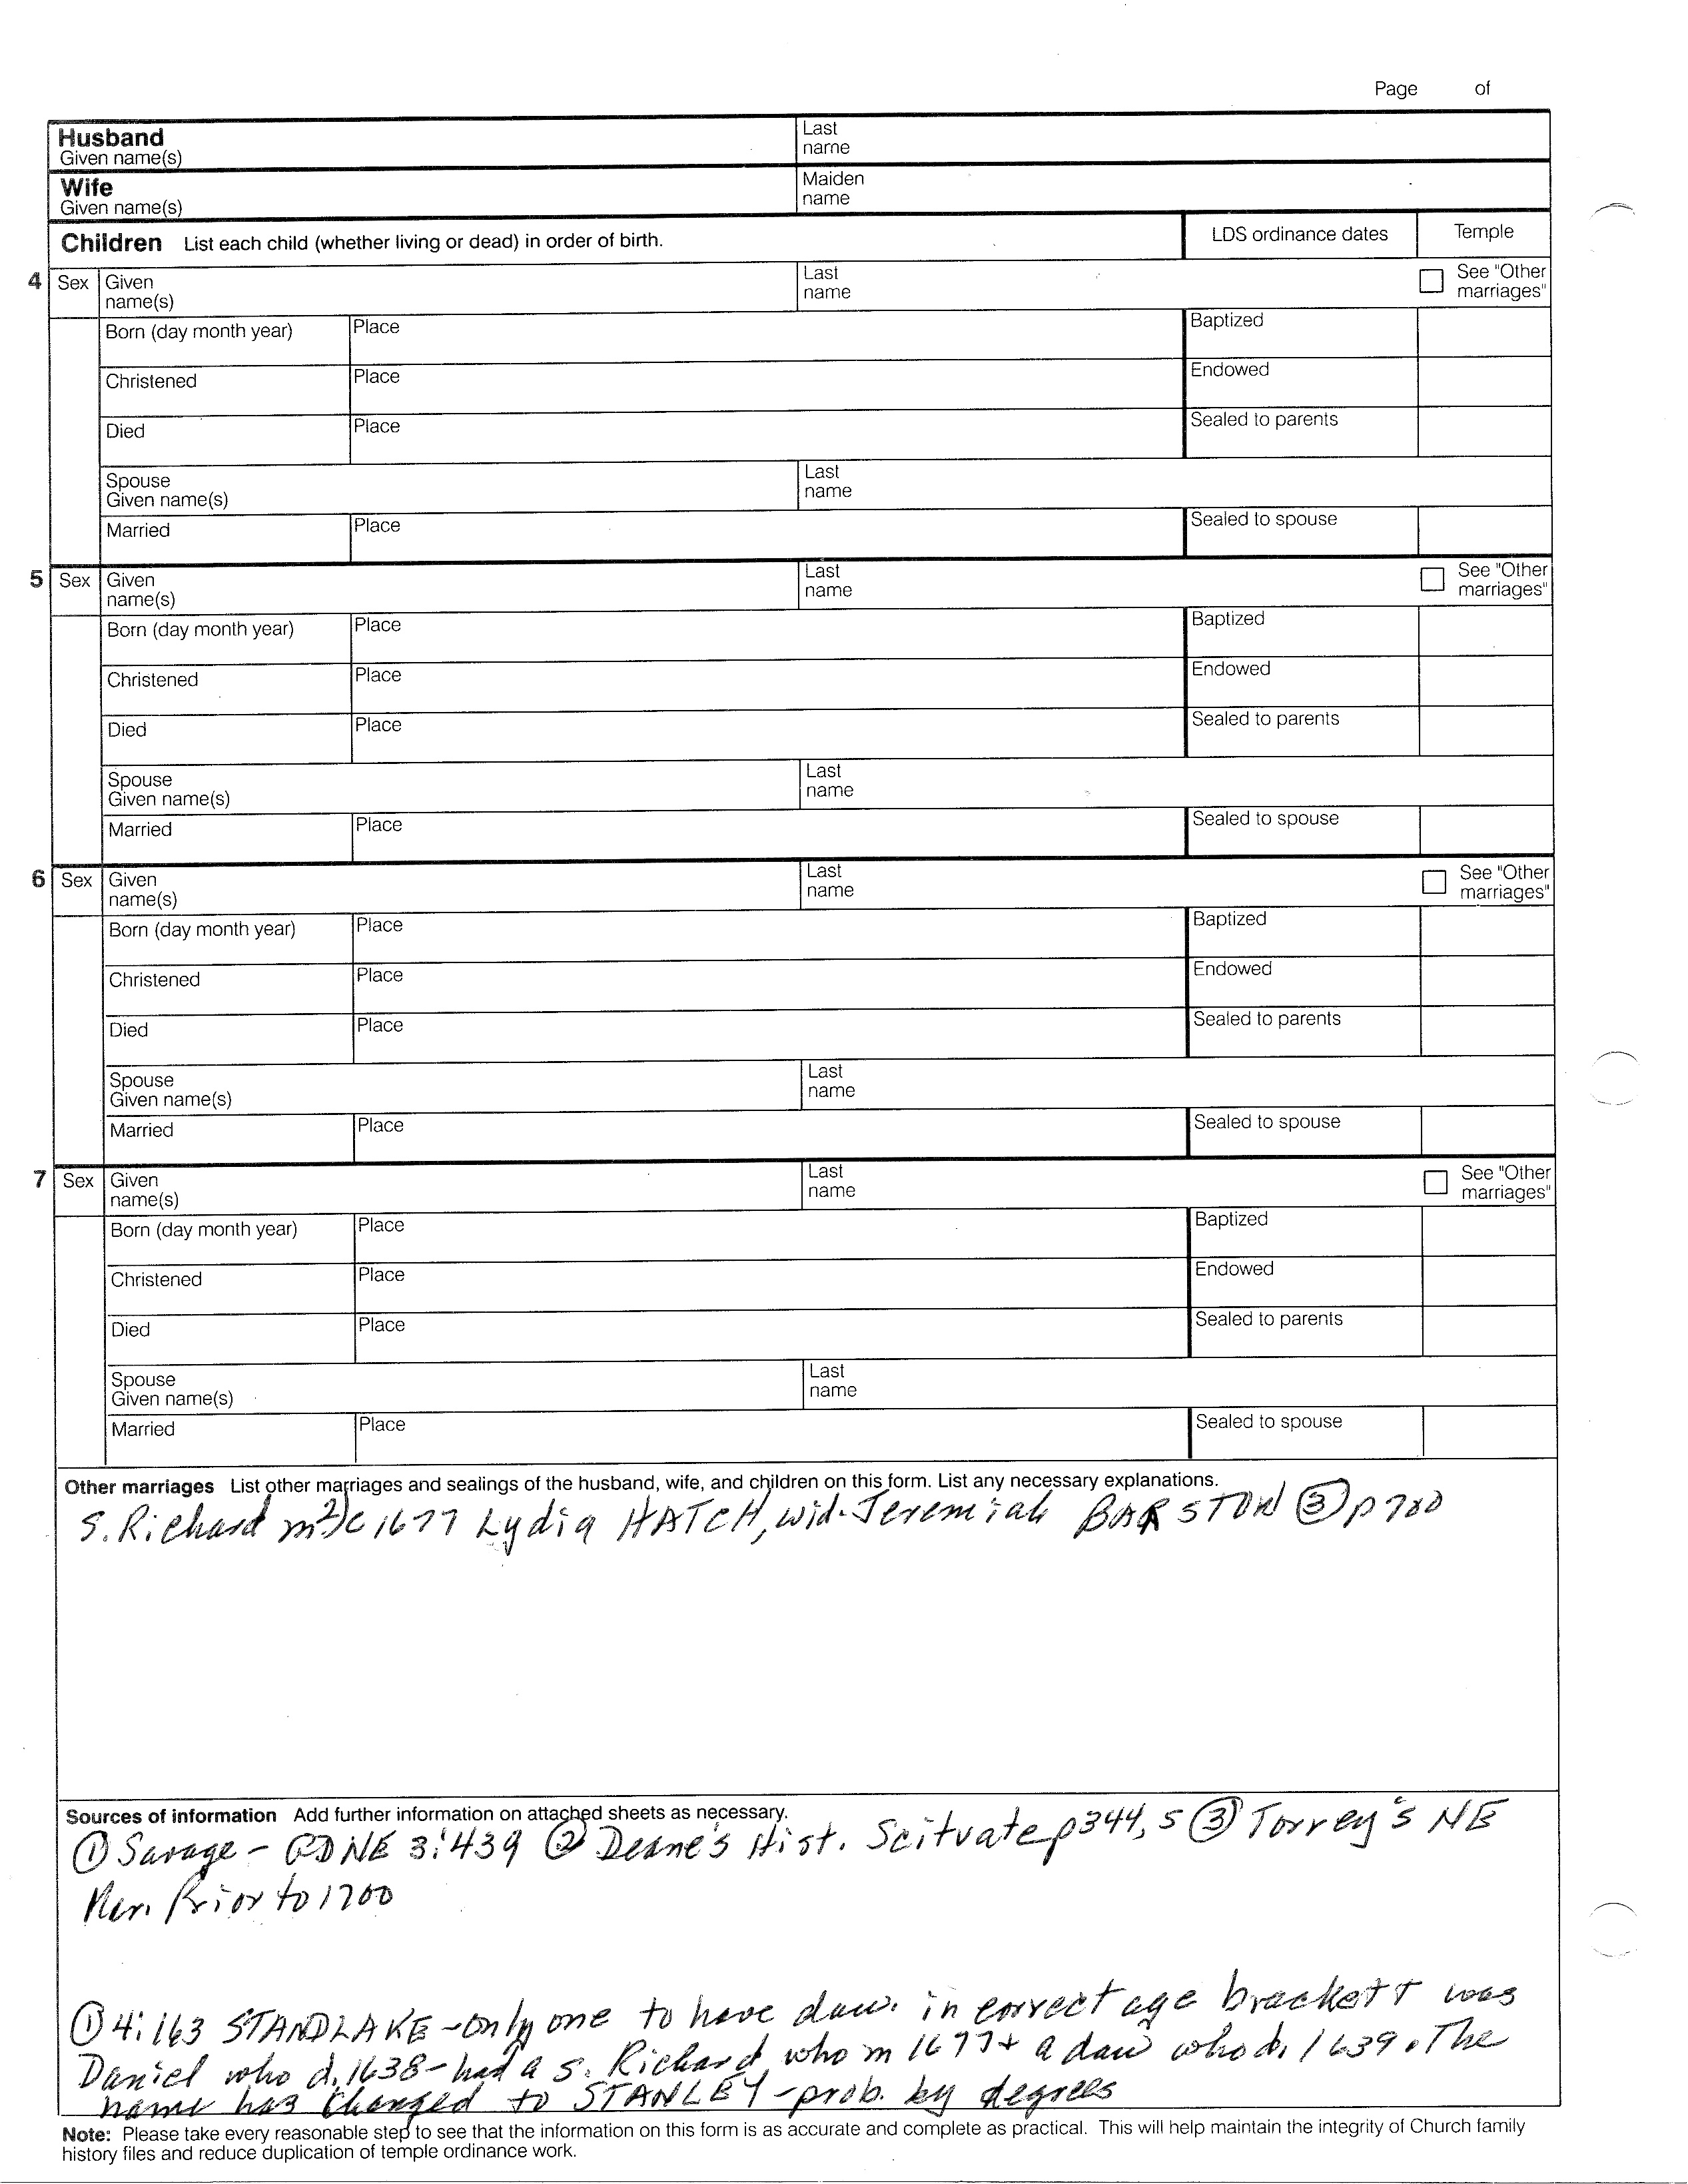 Page of
Husband
Given name(s)
Last
name
Wife
Given name(s)
Maiden
name
Children List each child (whether living or dead) in order of birth.
LDS ordinance dates
Temple
4 Sex Given
name(s)
Last
name
See "Other
marriages"
Born (day month year) Place Baptized
Christened Place Endowed
Died Place Sealed to parents
Spouse
Given name(s)
Last
name
Married Place Sealed to spouse
5 Sex Given
name(s)
Last
name
See "Other
marriages"
Born (day month year) Place Baptized
Christened Place Endowed
Died Place Sealed to parents
Spouse
Given name(s)
Last
name
Married Place Sealed to spouse
6 Sex Given
name(s)
Last
name
See "Other
marriages"
Born (day month year) Place Baptized
Christened Place Endowed
Died Place Sealed to parents
Spouse
Given name(s)
Last
name
Married Place Sealed to spouse
7 Sex Given
name(s)
Last
name
See "Other
marriages"
Born (day month year) Place Baptized
Christened Place Endowed
Died Place Sealed to parents
Spouse
Given name(s)
Last
name
Married Place Sealed to spouse
Other marriages List other marriages and sealings of the husband, wife, and children on this form. List any necessary explanations.
S. Richard m2)c 1677 Lydia HATCH, wid. Jeremiah BARSTOW ③ p 700
Sources of information Add further information on attached sheets as necessary.
① Savage - GDNE 3:439 ② Deane's Hist. Scituate p344,5 ③ Torrey's NE
Mar. Prior to 1700
① 4:163 STANDLAKE - only one to have dau. in correct age brackett was
Daniel who d. 1638 - had a s. Richard who m 1677 + a dau who b. 1639. The
name has changed to STANLEY - prob. by degrees
Note: Please take every reasonable step to see that the information on this form is as accurate and complete as practical. This will help maintain the integrity of Church family
history files and reduce duplication of temple ordinance work.